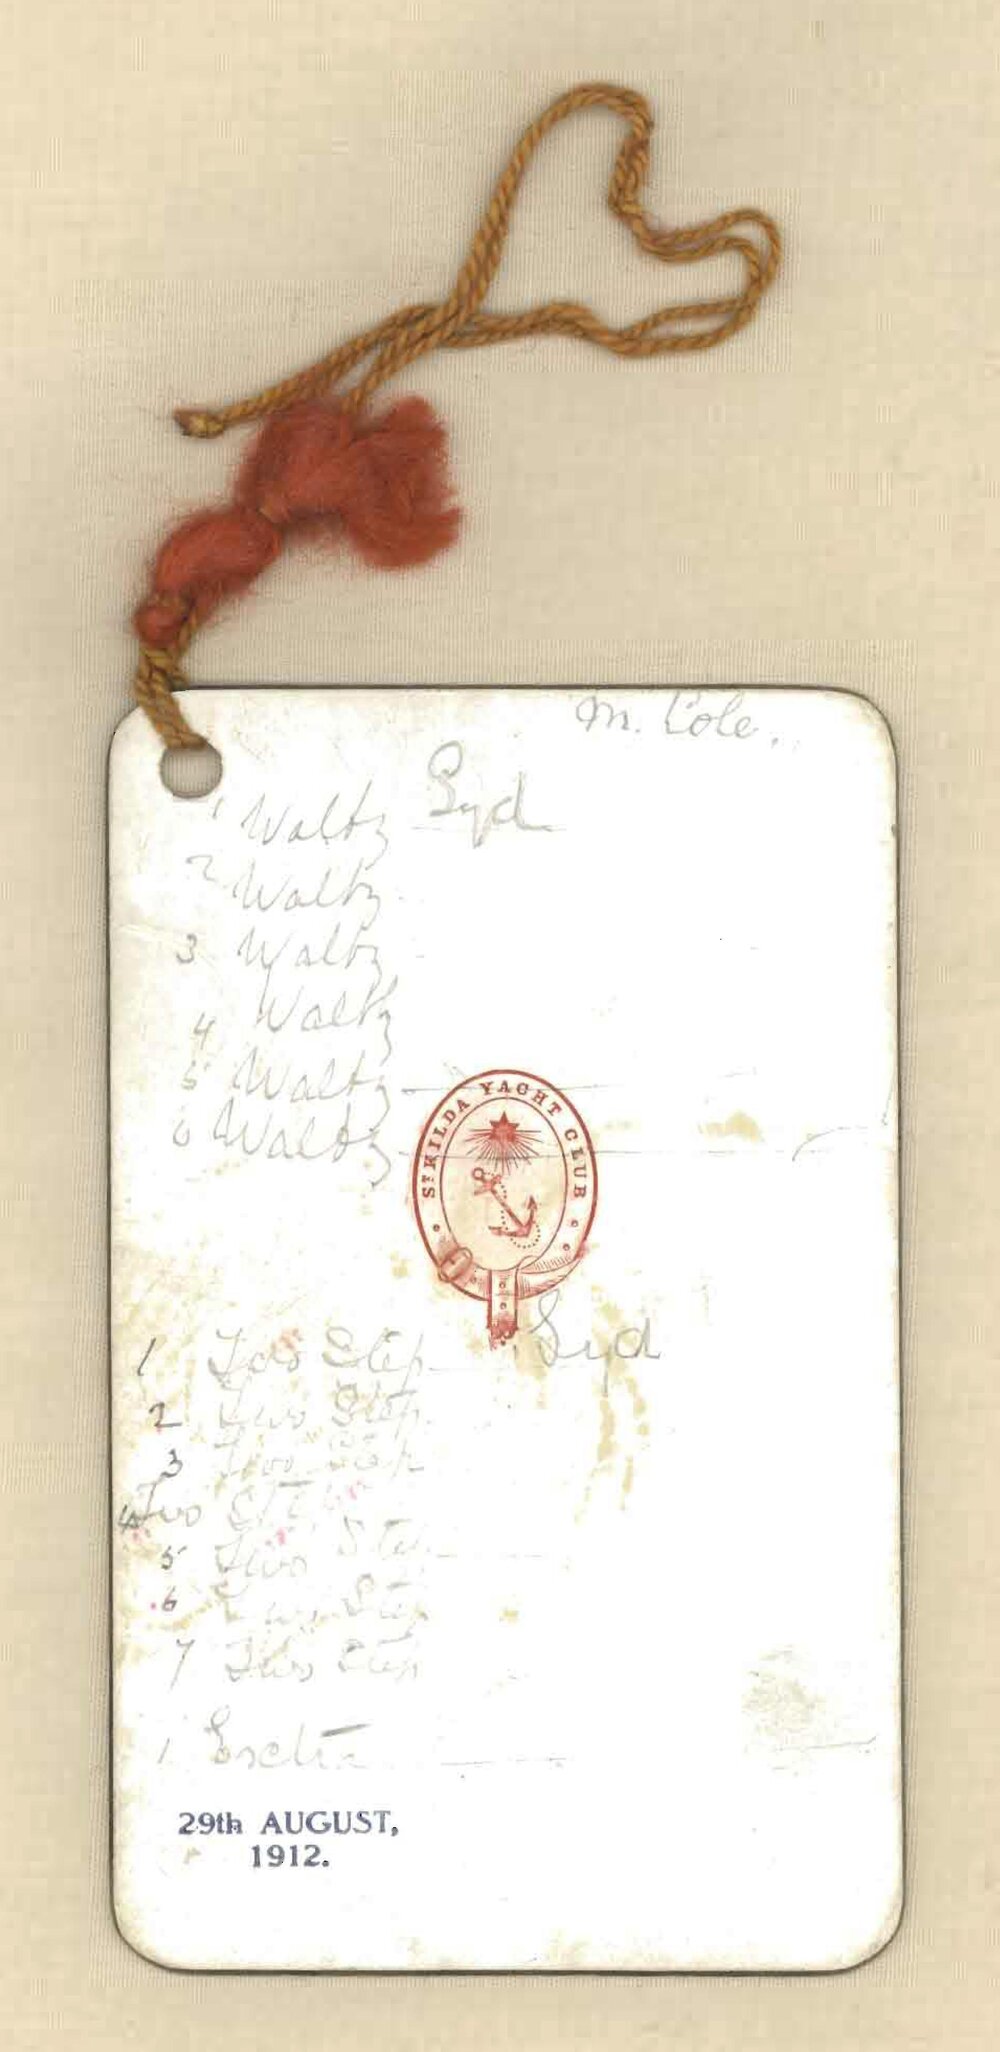 M. Cole.
1 Waltz Syd
2 Waltz
3 Waltz
4 Waltz
5 Waltz
6 Waltz
ST KILDA YACHT CLUB
1 Two Step Syd
2 Two Step
3 Two Step
4 Two Ste
5 Two Step
6 Two Step
7 Two Step
1 Extra
29th AUGUST,
1912.